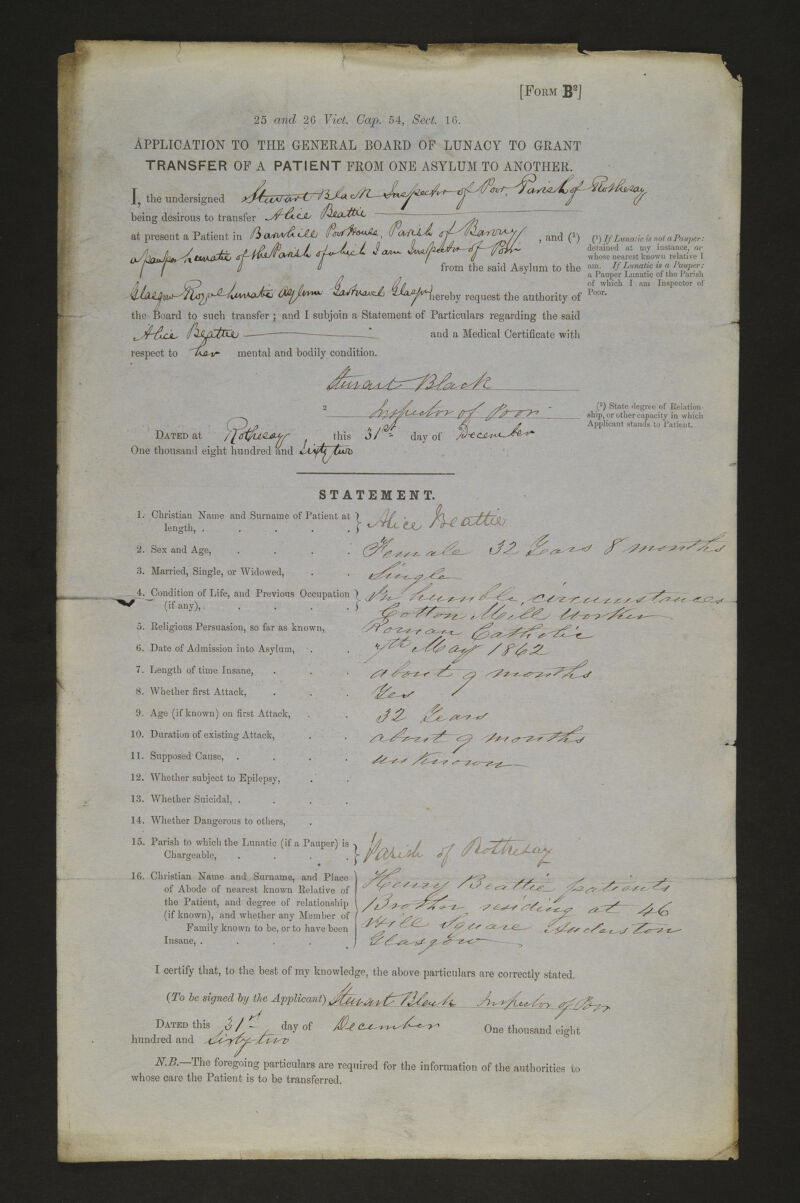 [FORM B²]
25 and 26 Vict. Cap. 54, Sect. 16.
APPLICATION TO THE GENERAL BOARD OF LUNACY TO GRANT
TRANSFER OF A PATIENT FROM ONE ASYLUM TO ANOTHER.
I, the undersigned Stewart Black Inspector of Poor, Parish of Rothesay
being desirous to transfer Alice Beattie
at present a Patient in Barnhill Poor House, Parish of Barony, and (¹)
a pauper Lunatic of the Parish of which I am Inspector of Poor
from the said Asylum to the
Glasgow Royal Lunatic Asylum Gartnavel Glasgow hereby request the authority of
the Board to such transfer; and I subjoin a Statement of Particulars regarding the said
Alice Beattie and a Medical Certificate with
respect to her mental and bodily condition.
(¹) If Lunatic is not a Pauper:
detained at my instance, or
whose nearest known relative I
am. If Lunatic is a Pauper:
a Pauper Lunatic of the Parish
of which I am Inspector of
Poor.
Stewart Black
² Inspector of Poor
(²) State degree of Relation-
ship, or other capacity in which
Applicant stands to Patient.
DATED at Rothesay, this 31st day of December
One thousand eight hundred and Sixty two
STATEMENT.
1. Christian Name and Surname of Patient at
length, . . . . . } Alice Beattie
2. Sex and Age, . . . . Female 32 Years 8 months
3. Married, Single, or Widowed, . . Single
4. Condition of Life, and Previous Occupation } In humble circumstances
(if any), . . . . . } Cotton Mill Worker
5. Religious Persuasion, so far as known, Roman Catholic
6. Date of Admission into Asylum, . . 7th May 1862
7. Length of time Insane, . . . about 9 months
8. Whether first Attack, . . . Yes
9. Age (if known) on first Attack, . . 32 Years
10. Duration of existing Attack, . . about 9 months
11. Supposed Cause, . . . . unknown
12. Whether subject to Epilepsy, . .
13. Whether Suicidal, . . . .
14. Whether Dangerous to others, .
15. Parish to which the Lunatic (if a Pauper) is
Chargeable, . . . . . } Parish of Rothesay
16. Christian Name and Surname, and Place Henry Beattie patients
of Abode of nearest known Relative of
the Patient, and degree of relationship Brother residing at 46
(if known), and whether any Member of Hill Square Anderston
Family known to be, or to have been
Insane, . . . . . Glasgow
I certify that, to the best of my knowledge, the above particulars are correctly stated.
(To be signed by the Applicant) Stewart Black Inspector of Poor
DATED this 31st day of December One thousand eight
hundred and Sixty two
N.B.—The foregoing particulars are required for the information of the authorities to
whose care the Patient is to be transferred.